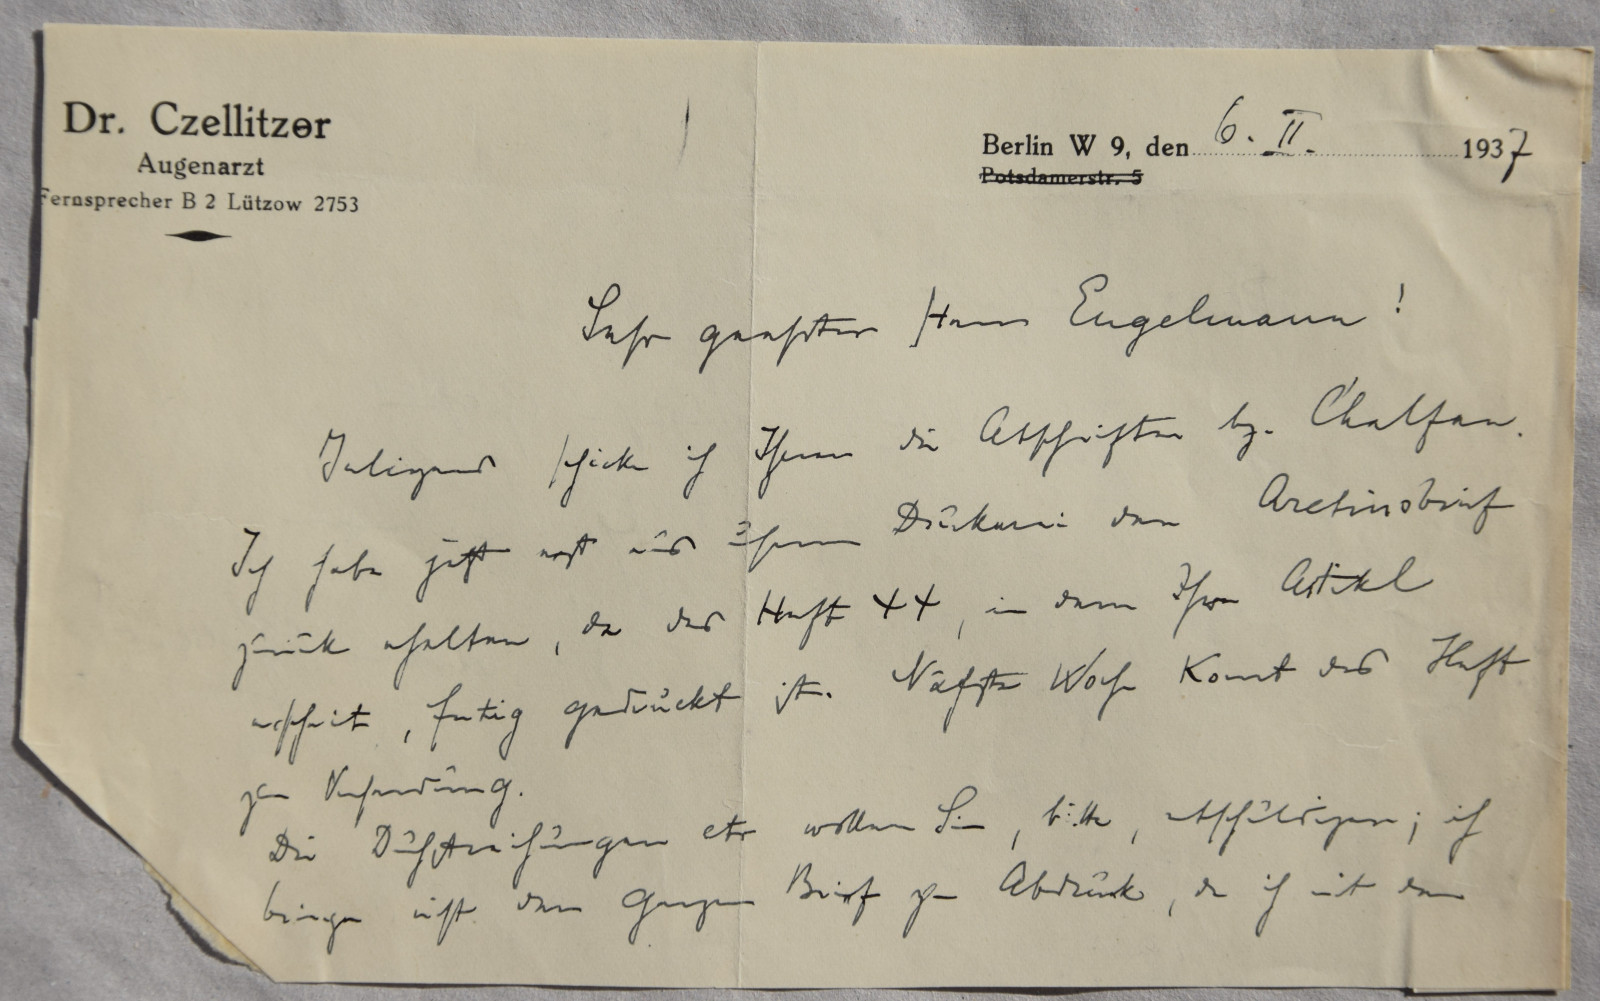 Dr. Czellitzer
Augenarzt
Fernsprecher B 2 Lützow 2753
Berlin W 9, den 6. II. 1937
Potsdamerstr. 5
Sehr geehrter Herr Engelmann!
Inliegend schicke ich Ihnen die Abschriften bz. Chalfan.
Ich habe jetzt erst aus Ihrer Druckerei den Aretinobrief
zurück erhalten, da das Heft 44, in dem Ihr Artikel
erscheint, fertig gedruckt ist. Nächste Woche komt das Heft
zur Versendung.
Die Durchstreichungen etc wollen Sie, bitte, entschuldigen; ich
bringe nicht den ganzen Brief zum Abdruck, da ich mit dem